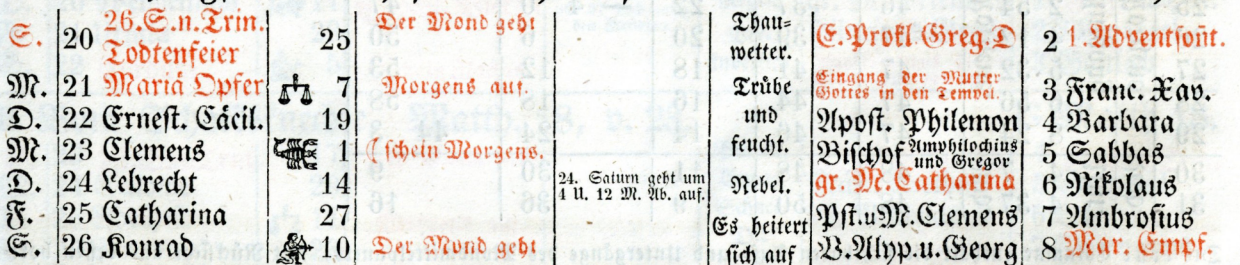 S. 20 26.S.n.Trin. Todtenfeier 25 Der Mond geht Thau- wetter. E.Prokl.Greg.D 2 1.Adventsoñt.
M. 21 Mariä Opfer 7 Morgens auf. Trübe Eingang der Mutter Gottes in den Tempel. 3 Franc. Xav.
D. 22 Ernest. Cäcil. 19 und Apost. Philemon 4 Barbara
M. 23 Clemens 1 (schein Morgens. feucht. Bischof Amphilochius und Gregor 5 Sabbas
D. 24 Lebrecht 14 24. Saturn geht um 4 U. 12 M. Ab. auf. Nebel. gr. M.Catharina 6 Nikolaus
F. 25 Catharina 27 Es heitert Pst.u.M.Clemens 7 Ambrosius
S. 26 Konrad 10 Der Mond geht sich auf B.Alyp.u.Georg 8 Mar. Empf.